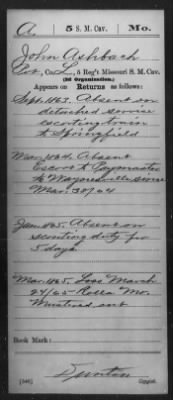 A. 5 S. M. Cav. Mo.
John Ashbach
Co. L, 5 Reg't Missouri S. M. Cav.
(2d Organization.)
Appears on Returns as follows:
Sept. 1863. Absent on
detached service
escorting train
to Springfield
Mar. 1864. Absent
Escort to Paymaster
to Waynesville since
Mar. 30/64
Jan. 1865. Absent on
scouting duty for
5 days
Mar. 1865. Loss March
24/65 Rolla Mo.
Mustered out
Book Mark:
(546)
Copyist.